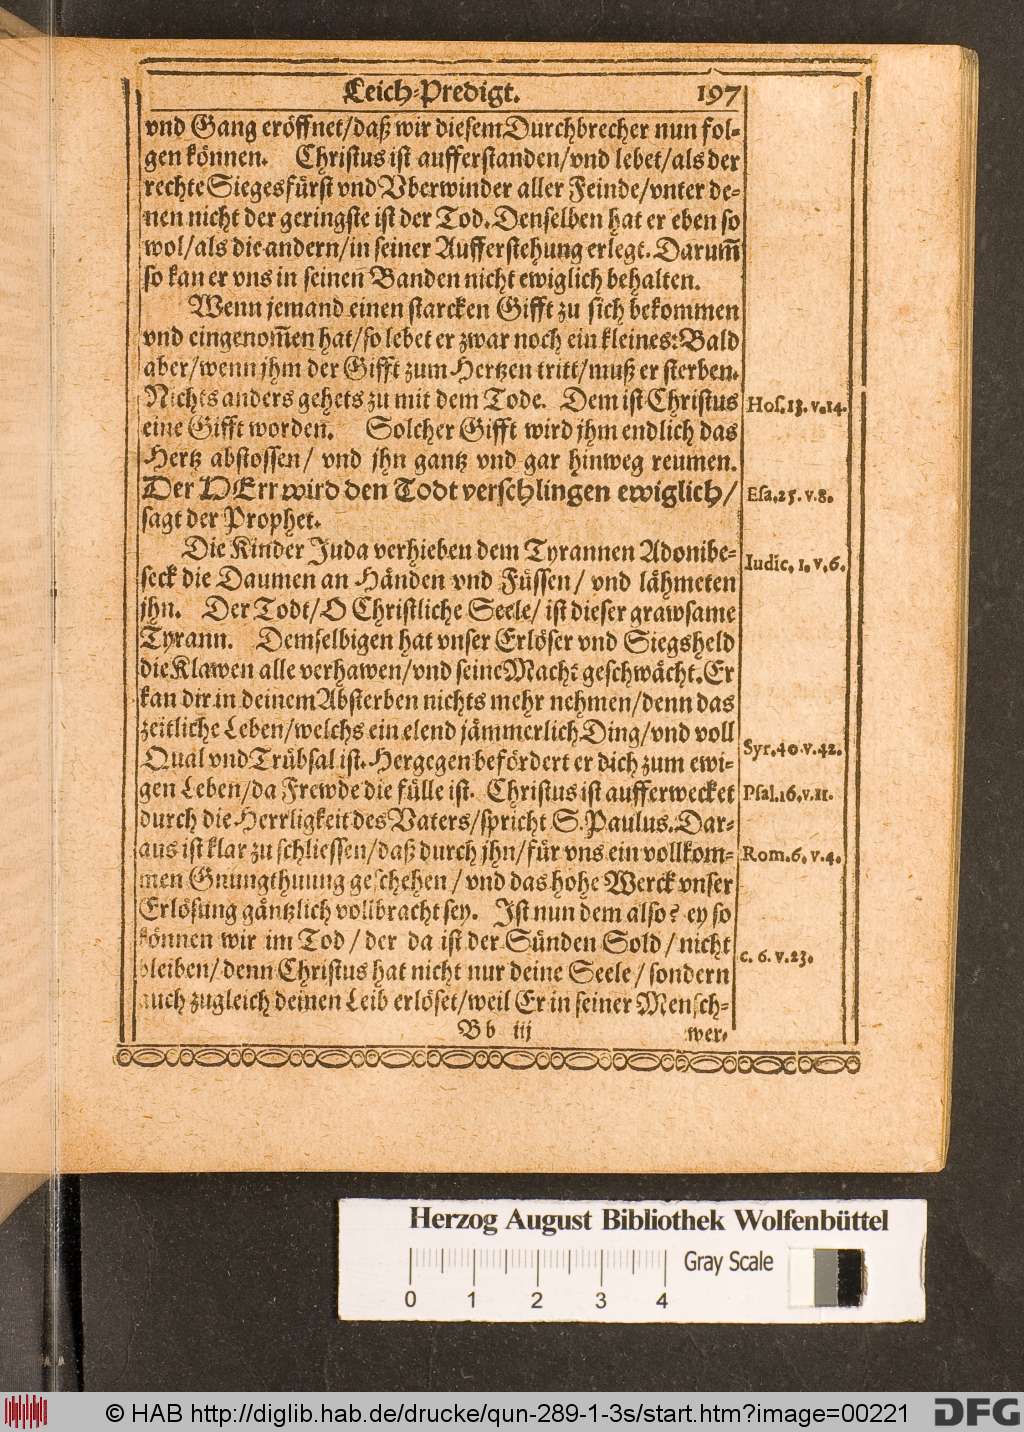 Leich-Predigt. 197
vnd Gang eröffnet/daß wir diesem Durchbrecher nun fol-
gen können. Christus ist aufferstanden/vnd lebet/als der
rechte Siegesfürst vnd Vberwinder aller Feinde/vnter de-
nen nicht der geringste ist der Tod. Denselben hat er eben so
wol/als die andern/in seiner Aufferstehung erlegt. Darum̃
so kan er vns in seinen Banden nicht ewiglich behalten.
Wenn jemand einen starcken Gifft zu sich bekommen
vnd eingenom̃en hat/so lebet er zwar noch ein kleines: Bald
aber/wenn jhm der Gifft zum Hertzen tritt/muß er sterben.
Nichts anders gehets zu mit dem Tode. Dem ist Christus
Hos.13.v.14.
eine Gifft worden. Solcher Gifft wird jhm endlich das
Hertz abstossen/ vnd jhn gantz vnd gar hinweg reumen.
Der HErr wird den Todt verschlingen ewiglich/
Esa.25.v.8.
sagt der Prophet.
Die Kinder Juda verhieben dem Tyrannen Adonibe-
Iudic. 1. v. 6.
seck die Daumen an Händen vnd Füssen/ vnd lähmeten
jhn. Der Todt/O Christliche Seele/ ist dieser grawsame
Tyrann. Demselbigen hat vnser Erlöser vnd Siegsheld
die Klawen alle verhawen/vnd seine Macht geschwächt. Er
kan dir in deinem Absterben nichts mehr nehmen/denn das
zeitliche Leben/welchs ein elend jämmerlich Ding/vnd voll
Syr.40.v.42.
Qual vnd Trübsal ist. Hergegen befördert er dich zum ewi-
gen Leben/da Frewde die fülle ist. Christus ist aufferwecket
Psal.16.v.11.
durch die Herrligkeit des Vaters/spricht S. Paulus. Dar-
aus ist klar zu schliessen/daß durch jhn/für vns ein vollkom-
Rom.6.v.4.
men Gnungthuung geschehen/ vnd das hohe Werck vnser
Erlösung gäntzlich vollbracht sey. Ist nun dem also? ey so
können wir im Tod/ der da ist der Sünden Sold/ nicht
c. 6. v.23.
bleiben/ denn Christus hat nicht nur deine Seele/ sondern
auch zugleich deinen Leib erlöset/weil Er in seiner Mensch-
Bb iij wer-
Herzog August Bibliothek Wolfenbüttel
Gray Scale
0 1 2 3 4
© HAB http://diglib.hab.de/drucke/qun-289-1-3s/start.htm?image=00221 DFG